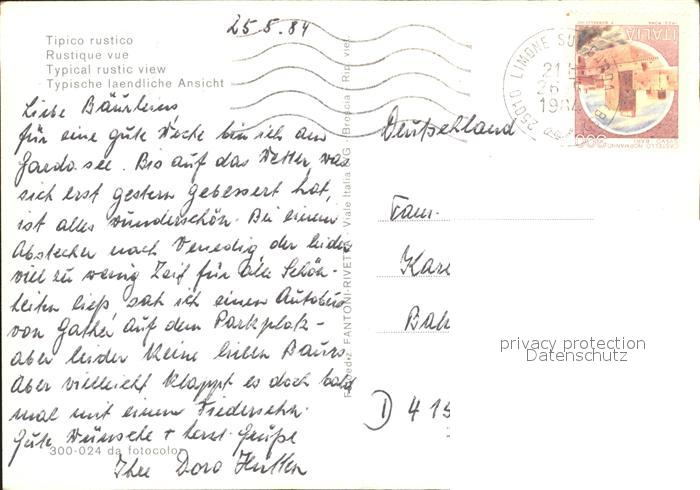 25.8.84
Tipico rustico
Rustique vue
Typical rustic view
Typische laendliche Ansicht
Liebe Bäurleins
für eine gute Woche bin ich am
Gardasee. Bis auf das Wetter, das
sich erst gestern gebessert hat,
ist alles wunderschön. Bei einem
Abstecher nach Venedig, der leider
viel zu wenig Zeit für alle Schön-
heiten ließ, sah ich einen Autobus
von Gather auf dem Parkplatz -
aber leider keine lieben Baurs.
Aber vielleicht klappt es doch bald
mal mit einem Wiedersehn.
Gute Wünsche + herzl. Grüße
300-024 da fotocolor
Ihre Dora
FANTONI-RIVETTA - Viale Italia - Brescia - Rip. viet.
25010 LIMONE SUL GARDA
21
26
198
ITALIA
Deutschland
Fam.
Karl
Bak
privacy protection
Datenschutz
D 415